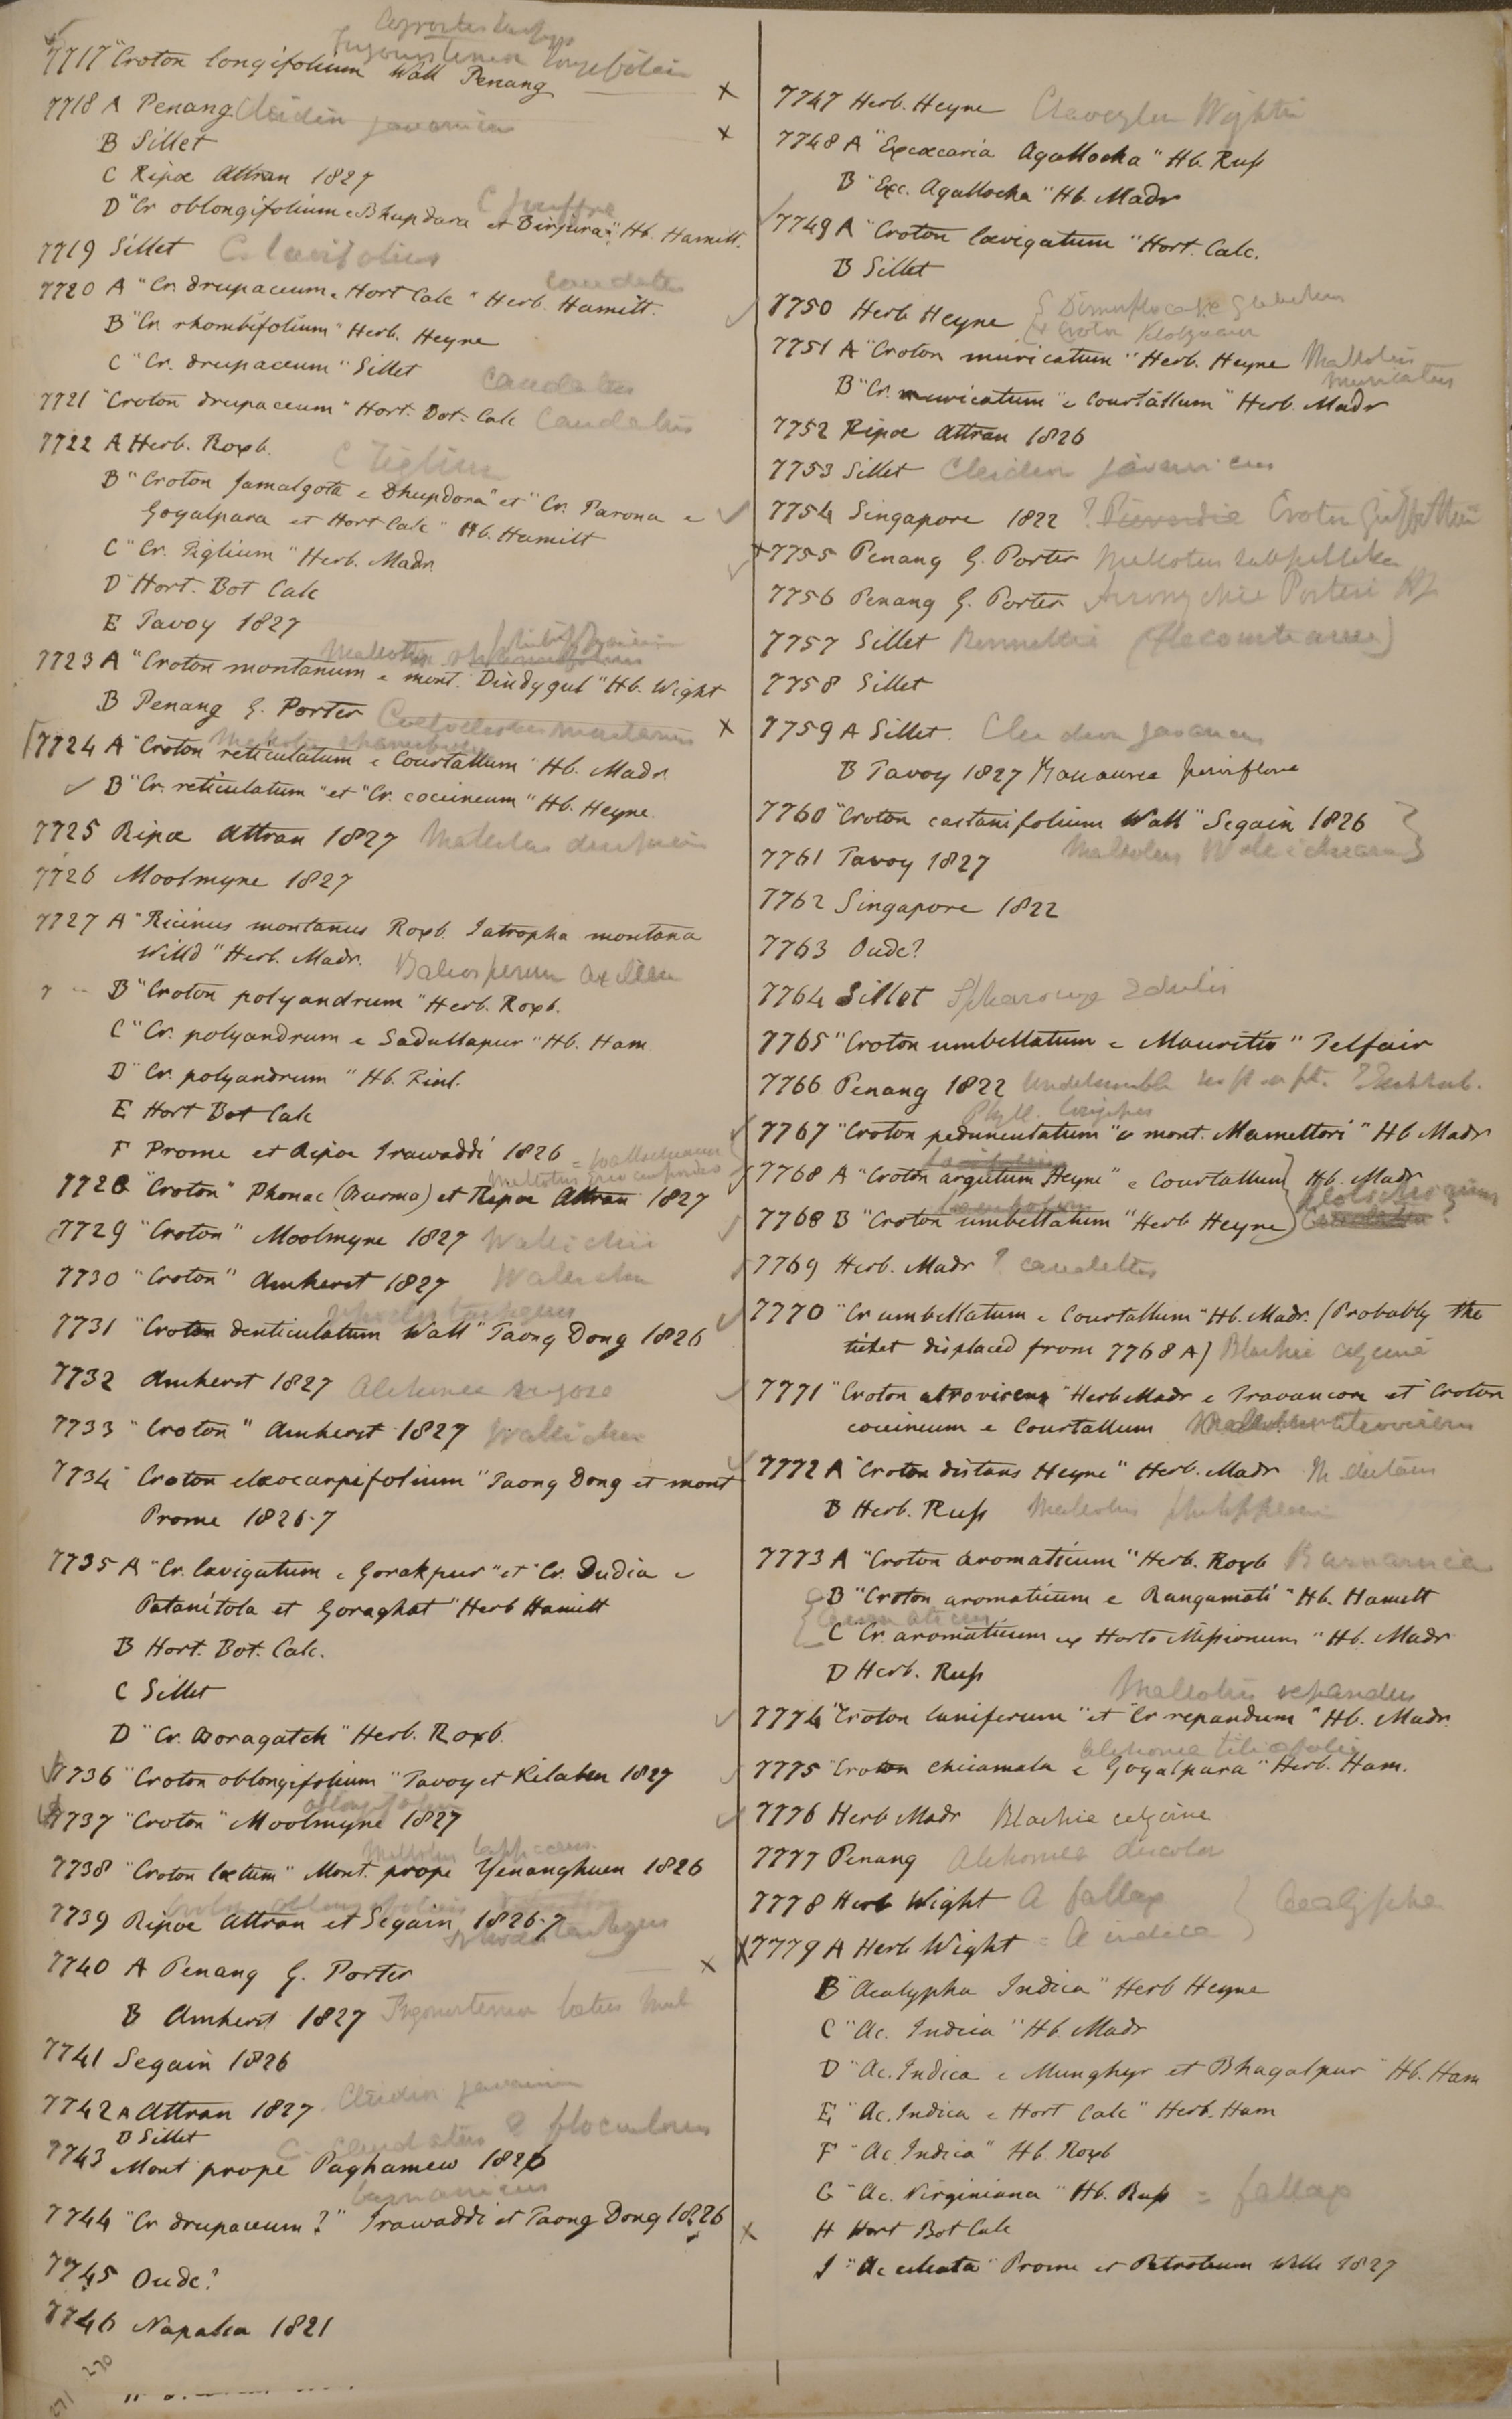 7717 "Croton longifolium Wall Penang
7718 A Penang Cleidion javanicum
B Sillet
C Ripæ Attran 1827
D "Cr oblongifolium e Bhupdara et Birjura" Hb. Hamilt.
7719 Sillet
7720 A "Cr. drupaceum e Hort Calc" Herb. Hamilt. caudatus
B "Cr. rhombifolium" Herb. Heyne
C "Cr. drupaceum" Sillet caudatus
7721 "Croton drupaceum" Hort. Bot. Calc caudatus
7722 A Herb. Roxb. C Tiglium
B "Croton Jamalgota e Dhupdora" et "Cr. Parona e
Goyalpara et Hort Calc" Hb. Hamilt
C "Cr. Tiglium" Herb. Madr.
D Hort. Bot Calc
E Tavoy 1827
7723 A "Croton montanum e mont. Dindygul" Hb. Wight
B Penang G. Porter
7724 A "Croton reticulatum e Courtallum" Hb. Madr.
B "Cr. reticulatum" et "Cr. coccineum" Hb. Heyne.
7725 Ripæ Attran 1827 Mallotus
7726 Moolmyne 1827
7727 A "Ricinus montanus Roxb. Jatropha montana
Willd" Herb. Madr. Baliospermum axillare
B "Croton polyandrum" Herb. Roxb.
C "Cr. polyandrum e Sadullapur" Hb. Ham.
D "Cr. polyandrum" Hb. Finl.
E Hort Bot Calc
F Prome et Ripæ Irawaddi 1826
7728 "Croton" Phonac (Burma) et Ripæ Attran 1827
7729 "Croton" Moolmyne 1827 Wallichii
7730 "Croton" Amherst 1827 Wallichii
7731 "Croton denticulatum Wall" Taong Dong 1826
7732 Amherst 1827 Alchornea rugosa
7733 "Croton" Amherst 1827 Wallichii
7734 "Croton elæocarpifolium" Taong Dong et mont
Prome 1826-7
7735 A "Cr. lævigatum e Gorakpur" et "Cr. Dudia e
Patanitola et Goraghat" Herb Hamilt
B Hort. Bot. Calc.
C Sillet
D "Cr. Boragatch" Herb. Roxb.
7736 "Croton oblongifolium" Tavoy et Kilaben 1827
oblongifolium
7737 "Croton" Moolmyne 1827
7738 "Croton lætum" Mont. prope Yenanghuen 1826
7739 Ripæ Attran et Segain 1826-7
7740 A Penang G. Porter
B Amherst 1827 Trigonostemon laetus
7741 Segain 1826
7742 A Attran 1827 Cleidion javanicum
B Sillet
7743 Mont prope Paghamew 1826
7744 "Cr drupaceum?" Irawaddi et Taong Dong 1826
7745 Oude?
7746 Napalia 1821
270
271
7747 Herb. Heyne Wightii
7748 A "Excæcaria Agallocha" Hb. Russ
B "Exc. Agallocha" Hb. Madr
7749 A "Croton lævigatum" Hort. Calc.
B Sillet
7750 Herb Heyne
7751 A "Croton muricatum" Herb. Heyne Mallotus
muricatus
B "Cr. muricatum e Courtallum" Herb. Madr
7752 Ripæ Attran 1826
7753 Sillet Cleidion javanicum
7754 Singapore 1822 ? Croton Griffithii
7755 Penang G. Porter Mallotus subpeltatus
7756 Penang G. Porter Acronychia Porteri Hf
7757 Sillet (Flacourtiaceae)
7758 Sillet
7759 A Sillet. Cleidion javanicum
B Tavoy 1827 Macaranga
7760 "Croton castanifolium Wall" Segain 1826
7761 Tavoy 1827 Mallotus Wallichianus
7762 Singapore 1822
7763 Oude?
7764 Sillet edulis
7765 "Croton umbellatum e Mauritio" Telfair
7766 Penang 1822
Phyll. longipes
7767 "Croton pedunculatum" e mont. Mamettori" Hb Madr
7768 A "Croton argutum Heyne" e Courtallum Hb. Madr
7768 B "Croton umbellatum" Herb Heyne
7769 Herb. Madr ? caudatus
7770 "Cr umbellatum e Courtallum" Hb. Madr. (Probably the
ticket displaced from 7768 A) Blachia calycina
7771 "Croton atrovirens" Herb Madr e Travancore et "Croton
coccineum e Courtallum Mallotus atrovirens
7772 A "Croton distans Heyne" Herb. Madr M. distans
B Herb. Russ Mallotus philippensis
7773 A "Croton aromaticum" Herb. Roxb
B "Croton aromaticum e Rangamati" Hb. Hamilt
aromaticus
C "Cr. aromaticum ex Horto Missionum" Hb. Madr
D Herb. Russ
Mallotus repandus
7774 "Croton laniferum" et "Cr repandum" Hb. Madr.
Alchornea tiliaefolia
7775 "Croton chicamala e Goyalpara" Herb. Ham.
7776 Herb Madr Blachia calycina
7777 Penang Alchornea discolor
7778 Herb Wight A fallax Acalypha
7779 A Herb Wight = A indica
B "Acalypha Indica" Herb Heyne
C "Ac. Indica" Hb. Madr
D "Ac. Indica e Munghyr et Bhagalpur" Hb. Ham
E "Ac. Indica e Hort Calc" Herb. Ham
F "Ac. Indica" Hb. Roxb
G "Ac. Virginiana" Hb. Russ = fallax
H Hort Bot Calc
I "Ac ciliata" Prome et Petroleum Wells 1827